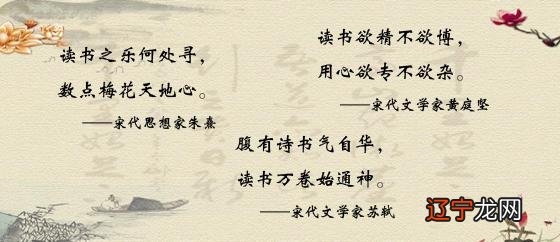 读书之乐何处寻，
数点梅花天地心。
——宋代思想家朱熹
读书欲精不欲博，
用心欲专不欲杂。
——宋代文学家黄庭坚
腹有诗书气自华，
读书万卷始通神。
——宋代文学家苏轼
辽宁龙网